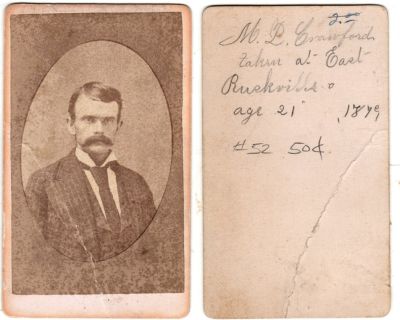 25
M. P. Crawford
taken at East
Ruskville o
age 21 1879
#52 50¢